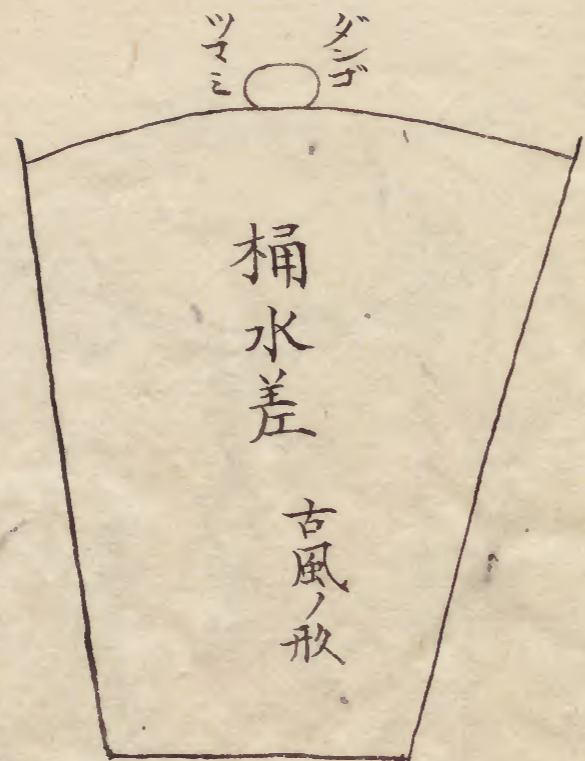 ダンゴ
ツマミ
桶水差
古風ノ形